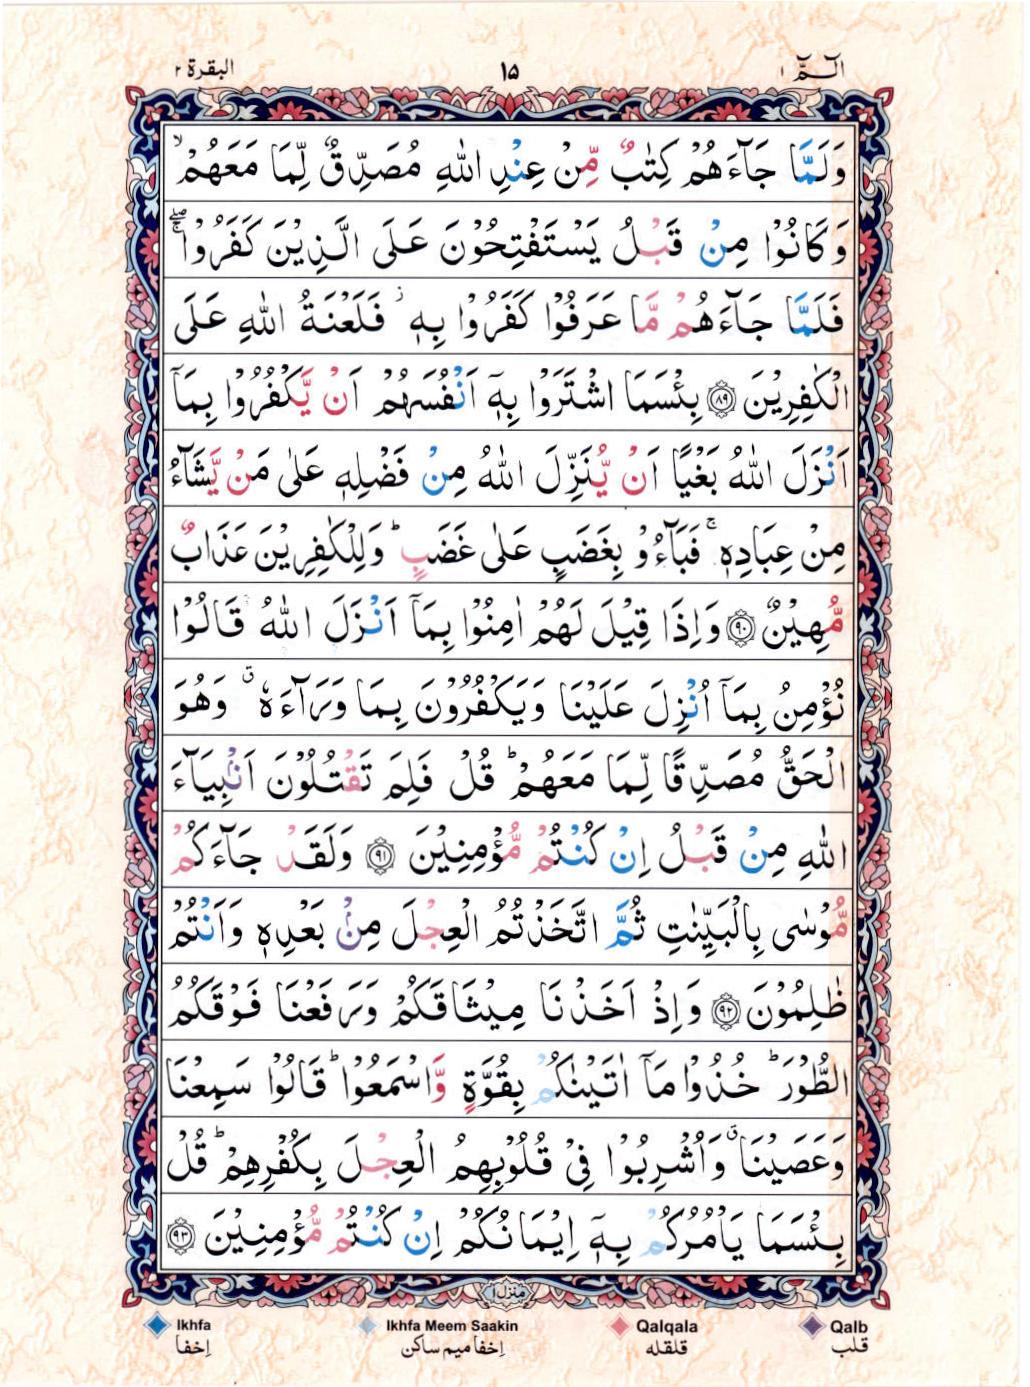 الٓمّٓ ١
١٥
البقرة ٢
وَلَمَّا جَآءَهُمْ كِتٰبٌ مِّنْ عِنْدِ اللّٰهِ مُصَدِّقٌ لِّمَا مَعَهُمْ ۙ
وَكَانُوْا مِنْ قَبْلُ يَسْتَفْتِحُوْنَ عَلَى الَّذِيْنَ كَفَرُوْا ۖۚ
فَلَمَّا جَآءَهُمْ مَّا عَرَفُوْا كَفَرُوْا بِهٖ ؗ فَلَعْنَةُ اللّٰهِ عَلَى
الْكٰفِرِيْنَ ﴿٨٩﴾ بِئْسَمَا اشْتَرَوْا بِهٖٓ اَنْفُسَهُمْ اَنْ يَّكْفُرُوْا بِمَآ
اَنْزَلَ اللّٰهُ بَغْيًا اَنْ يُّنَزِّلَ اللّٰهُ مِنْ فَضْلِهٖ عَلٰى مَنْ يَّشَآءُ
مِنْ عِبَادِهٖ ۚ فَبَآءُوْ بِغَضَبٍ عَلٰى غَضَبٍ ؕ وَلِلْكٰفِرِيْنَ عَذَابٌ
مُّهِيْنٌ ﴿٩٠﴾ وَاِذَا قِيْلَ لَهُمْ اٰمِنُوْا بِمَآ اَنْزَلَ اللّٰهُ قَالُوْا
نُؤْمِنُ بِمَآ اُنْزِلَ عَلَيْنَا وَيَكْفُرُوْنَ بِمَا وَرَآءَهٗ ۗ وَهُوَ
الْحَقُّ مُصَدِّقًا لِّمَا مَعَهُمْ ؕ قُلْ فَلِمَ تَقْتُلُوْنَ اَنْۢبِيَآءَ
اللّٰهِ مِنْ قَبْلُ اِنْ كُنْتُمْ مُّؤْمِنِيْنَ ﴿٩١﴾ وَلَقَدْ جَآءَكُمْ
مُّوْسٰى بِالْبَيِّنٰتِ ثُمَّ اتَّخَذْتُمُ الْعِجْلَ مِنْۢ بَعْدِهٖ وَاَنْتُمْ
ظٰلِمُوْنَ ﴿٩٢﴾ وَاِذْ اَخَذْنَا مِيْثَاقَكُمْ وَرَفَعْنَا فَوْقَكُمُ
الطُّوْرَ ؕ خُذُوْا مَآ اٰتَيْنٰكُمْ بِقُوَّةٍ وَّاسْمَعُوْا ؕ قَالُوْا سَمِعْنَا
وَعَصَيْنَا ۗ وَاُشْرِبُوْا فِيْ قُلُوْبِهِمُ الْعِجْلَ بِكُفْرِهِمْ ؕ قُلْ
بِئْسَمَا يَاْمُرُكُمْ بِهٖٓ اِيْمَانُكُمْ اِنْ كُنْتُمْ مُّؤْمِنِيْنَ ﴿٩٣﴾
منزل ١
Ikhfa Ikhfa Meem Saakin Qalqala Qalb
اِخفا اِخفا میم ساکن قلقله قلب